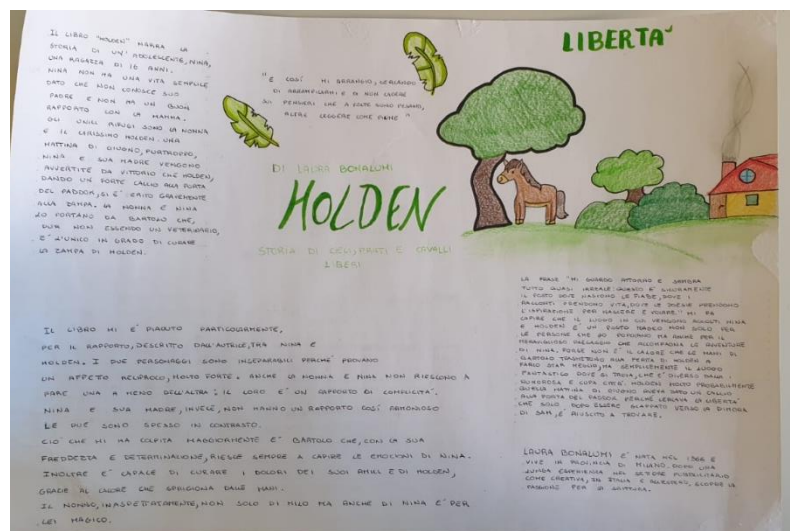 IL LIBRO "HOLDEN" NARRA LA
STORIA DI UN'ADOLESCENTE, NINA,
UNA RAGAZZA DI 16 ANNI.
NINA NON HA UNA VITA SEMPLICE
DATO CHE NON CONOSCE SUO
PADRE E NON HA UN BUON
RAPPORTO CON LA MAMMA.
GLI UNICI RIFUGI SONO LA NONNA
E IL CARISSIMO HOLDEN. UNA
MATTINA DI GIUGNO, PURTROPPO,
NINA E SUA MADRE VENGONO
AVVERTITE DA VITTORIO CHE HOLDEN,
DANDO UN FORTE CALCIO ALLA PORTA
DEL PADDOCK, SI E' FERITO GRAVEMENTE
ALLA ZAMPA. LA NONNA E NINA
LO PORTANO DA BARTOLO CHE,
PUR NON ESSENDO UN VETERINARIO,
E' L'UNICO IN GRADO DI CURARE
LA ZAMPA DI HOLDEN.
"E COSÍ MI ARRANGIO, CERCANDO
DI ARRAMPICARMI E DI NON CADERE
SUI PENSIERI CHE A VOLTE SONO PESANTI,
ALTRE LEGGERE COME PIUME"
LIBERTA'
DI LAURA BONALUMI
HOLDEN
STORIA DI CELI, PRATI E CAVALLI
LIBERI
IL LIBRO MI E' PIACIUTO PARTICOLARMENTE,
PER IL RAPPORTO, DESCRITTO DALL'AUTRICE, TRA NINA E
HOLDEN. I DUE PERSONAGGI SONO INSEPARABILI PERCHÉ PROVANO
UN AFFETTO RECIPROCO, MOLTO FORTE. ANCHE LA NONNA E NINA NON RIESCONO A
FARE UNA A MENO DELL'ALTRA; IL LORO E' UN RAPPORTO DI COMPLICITA'.
NINA E SUA MADRE, INVECE, NON HANNO UN RAPPORTO COSÍ ARMONIOSO
LE DUE SONO SPESSO IN CONTRASTO.
CIO' CHE MI HA COLPITA MAGGIORMENTE E' BARTOLO CHE, CON LA SUA
FREDDEZZA E DETERMINAZIONE, RIESCE SEMPRE A CAPIRE LE EMOZIONI DI NINA.
INOLTRE E' CAPACE DI CURARE I DOLORI DEI SUOI AMICI E DI HOLDEN,
GRAZIE AL CALORE CHE SPRIGIONA DALLE MANI.
IL NONNO, INASPETTATAMENTE, NON SOLO DI MILO MA ANCHE DI NINA E' PER
LEI MAGICO.
LA FRASE "MI GUARDO ATTORNO E SEMBRA
TUTTO QUASI IRREALE: QUESTO E' SICURAMENTE
IL POSTO DOVE NASCONO LE FIABE, DOVE I
RACCONTI PRENDONO VITA, DOVE LE POESIE PRENDONO
L'ISPIRAZIONE PER NASCERE E VOLARE." MI FA
CAPIRE CHE IL LUOGO IN CUI VENGONO ACCOLTI NINA
E HOLDEN E' UN POSTO MAGICO NON SOLO PER
LE PERSONE CHE LO POPOLANO MA ANCHE PER IL
MERAVIGLIOSO PAESAGGIO CHE ACCOMPAGNA LE AVVENTURE
DI NINA. FORSE NON E' IL CALORE CHE LE MANI DI
BARTOLO TRASMETTONO ALLA ZAMPA DI HOLDEN A
FARLO STAR MEGLIO, MA SEMPLICEMENTE IL LUOGO
FANTASTICO DOVE SI TROVA, CHE E' DIVERSO DALLA
RUMOROSA E CUPA CITTA'. HOLDEN MOLTO PROBABILMENTE
QUELLA MATTINA DI GIUGNO AVEVA DATO UN CALCIO
ALLA PORTA DEL PADDOCK PERCHÉ CERCAVA LA LIBERTA'
CHE SOLO DOPO ESSERE SCAPPATO VERSO LA DIMORA
DI SAM, E' RIUSCITO A TROVARE.
LAURA BONALUMI E' NATA NEL 1966 E
VIVE IN PROVINCIA DI MILANO. DOPO UNA
LUNGA ESPERIENZA NEL SETTORE PUBBLICITARIO
COME CREATIVA, IN ITALIA E ALL'ESTERO, SCOPRE LA
PASSIONE PER LA SCRITTURA.